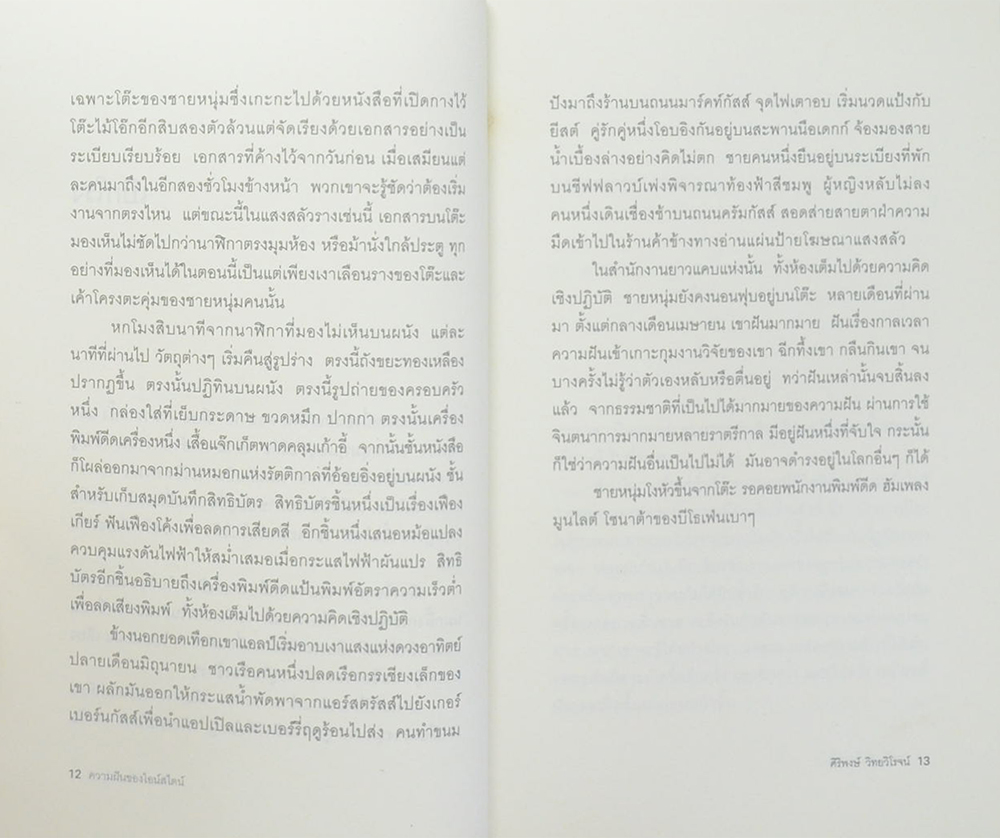 เฉพาะโต๊ะของชายหนุ่มซึ่งเกะกะไปด้วยหนังสือที่เปิดกางไว้
โต๊ะไม้โอ๊กอีกสิบสองตัวล้วนแต่จัดเรียงด้วยเอกสารอย่างเป็น
ระเบียบเรียบร้อย เอกสารที่ค้างไว้จากวันก่อน เมื่อเสมียนแต่
ละคนมาถึงในอีกสองชั่วโมงข้างหน้า พวกเขาจะรู้ชัดว่าต้องเริ่ม
งานจากตรงไหน แต่ขณะนี้ในแสงสลัวรางเช่นนี้ เอกสารบนโต๊ะ
มองเห็นไม่ชัดไปกว่านาฬิกาตรงมุมห้อง หรือม้านั่งใกล้ประตู ทุก
อย่างที่มองเห็นได้ในตอนนี้เป็นแต่เพียงเงาเลือนรางของโต๊ะและ
เค้าโครงตะคุ่มของชายหนุ่มคนนั้น
หกโมงสิบนาทีจากนาฬิกาที่มองไม่เห็นบนผนัง แต่ละ
นาทีที่ผ่านไป วัตถุต่างๆ เริ่มคืนสู่รูปร่าง ตรงนี้ถังขยะทองเหลือง
ปรากฏขึ้น ตรงนั้นปฏิทินบนผนัง ตรงนี้รูปถ่ายของครอบครัว
หนึ่ง กล่องใส่ที่เย็บกระดาษ ขวดหมึก ปากกา ตรงนั้นเครื่อง
พิมพ์ดีดเครื่องหนึ่ง เสื้อแจ๊กเก็ตพาดคลุมเก้าอี้ จากนั้นชั้นหนังสือ
ก็โผล่ออกมาจากม่านหมอกแห่งรัตติกาลที่อ้อยอิ่งอยู่บนผนัง ชั้น
สำหรับเก็บสมุดบันทึกสิทธิบัตร สิทธิบัตรชิ้นหนึ่งเป็นเรื่องเฟือง
เกียร์ ฟันเฟืองโค้งเพื่อลดการเสียดสี อีกชิ้นหนึ่งเสนอหม้อแปลง
ควบคุมแรงดันไฟฟ้าให้สม่ำเสมอเมื่อกระแสไฟฟ้าผันแปร สิทธิ
บัตรอีกชิ้นอธิบายถึงเครื่องพิมพ์ดีดแป้นพิมพ์อัตราความเร็วต่ำ
เพื่อลดเสียงพิมพ์ ทั้งห้องเต็มไปด้วยความคิดเชิงปฏิบัติ
ข้างนอกยอดเทือกเขาแอลป์เริ่มอาบเงาแสงแห่งดวงอาทิตย์
ปลายเดือนมิถุนายน ชาวเรือคนหนึ่งปลดเรือกรรเชียงเล็กของ
เขา ผลักมันออกให้กระแสน้ำพัดพาจากแอร์สตรัสส์ไปยังเกอร์
เบอร์นกัสส์เพื่อนำแอปเปิลและเบอร์รี่ฤดูร้อนไปส่ง คนทำขนม
12 ความฝันของไอน์สไตน์
ปังมาถึงร้านบนถนนมาร์คท์กัสส์ จุดไฟเตาอบ เริ่มนวดแป้งกับ
ยีสต์ คู่รักคู่หนึ่งโอบอิงกันอยู่บนสะพานนือเดกก์ จ้องมองสาย
น้ำเบื้องล่างอย่างคิดไม่ตก ชายคนหนึ่งยืนอยู่บนระเบียงที่พัก
บนชีฟฟลาวบ์เพ่งพิจารณาท้องฟ้าสีชมพู ผู้หญิงหลับไม่ลง
คนหนึ่งเดินเชื่องช้าบนถนนครัมกัสส์ สอดส่ายสายตาฝ่าความ
มืดเข้าไปในร้านค้าข้างทางอ่านแผ่นป้ายโฆษณาแสงสลัว
ในสำนักงานยาวแคบแห่งนั้น ทั้งห้องเต็มไปด้วยความคิด
เชิงปฏิบัติ ชายหนุ่มยังคงนอนฟุบอยู่บนโต๊ะ หลายเดือนที่ผ่าน
มา ตั้งแต่กลางเดือนเมษายน เขาฝันมากมาย ฝันเรื่องกาลเวลา
ความฝันเข้าเกาะกุมงานวิจัยของเขา ฉีกทึ้งเขา กลืนกินเขา จน
บางครั้งไม่รู้ว่าตัวเองหลับหรือตื่นอยู่ ทว่าฝันเหล่านั้นจบสิ้นลง
แล้ว จากธรรมชาติที่เป็นไปได้มากมายของความฝัน ผ่านการใช้
จินตนาการมากมายหลายราตรีกาล มีอยู่ฝันหนึ่งที่จับใจ กระนั้น
ก็ใช่ว่าความฝันอื่นเป็นไปไม่ได้ มันอาจดำรงอยู่ในโลกอื่นๆ ก็ได้
ชายหนุ่มโงหัวขึ้นจากโต๊ะ รอคอยพนักงานพิมพ์ดีด ฮัมเพลง
มูนไลต์ โซนาต้าของบีโธเฟ่นเบาๆ
ศิริพงษ์ วิทยวิโรจน์ 13